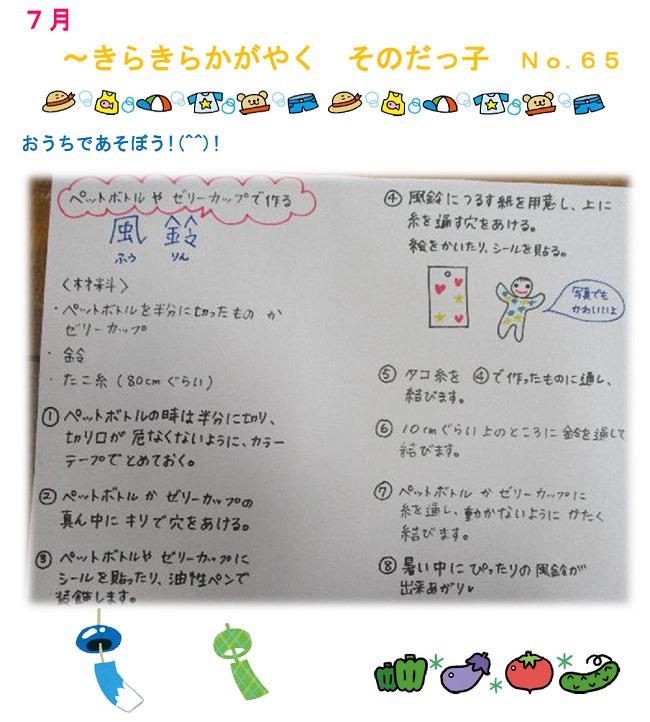 7月
～きらきらかがやく　そのだっ子　Ｎｏ.６５
おうちであそぼう!(^^)!
ペットボトルや ゼリーカップで作る
風鈴
ふう りん
〈材料〉
・ペットボトルを半分に切ったもの か
ゼリーカップ
・鈴
・たこ糸（80cmぐらい）
① ペットボトルの時は半分に切り、
切り口が 危なくないように、カラー
テープでとめておく。
② ペットボトル か ゼリーカップの
真ん中に キリで穴をあける。
③ ペットボトルや ゼリーカップに
シールを貼ったり、油性ペンで
装飾します。
④ 風鈴につるす紙を用意し、上に
糸を通す穴をあける。
絵をかいたり、シールを貼る。
写真でも
かわいいよ
⑤ タコ糸を ④で作ったものに通し、
結びます。
⑥ 10cmぐらい上のところに 鈴を通して
結びます。
⑦ ペットボトル か ゼリーカップに
糸を通し、動かないように かたく
結びます。
⑧ 暑い中に ぴったりの風鈴が
出来あがり♥